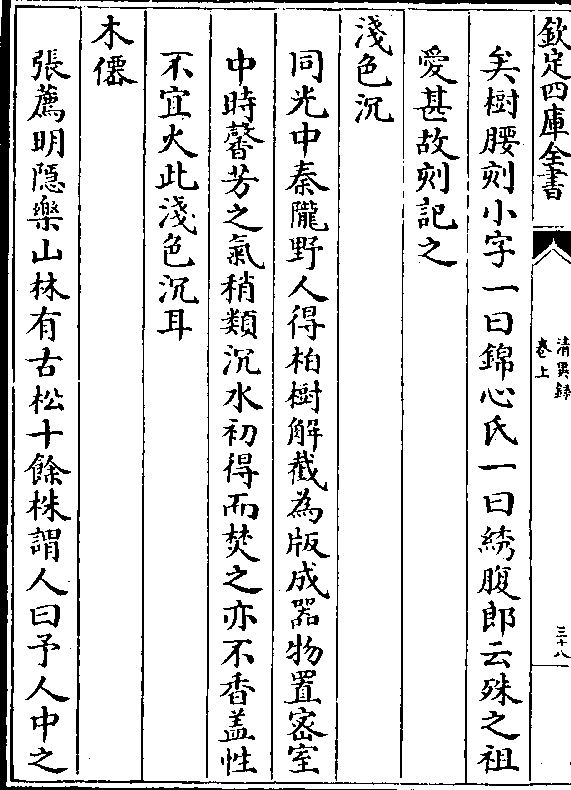 欽定四庫全書
清異錄
卷上
三十八
矣樹腰刻小字一曰錦心氏一曰綉腹郎云殊之祖
愛甚故刻記之
淺色沉
同光中秦隴野人得柏樹解截為版成器物置密室
中時馨芳之氣稍類沉水初得而焚之亦不香盖性
不宜火此淺色沉耳
木僊
張薦明隠樂山林有古松十餘株謂人曰予人中之